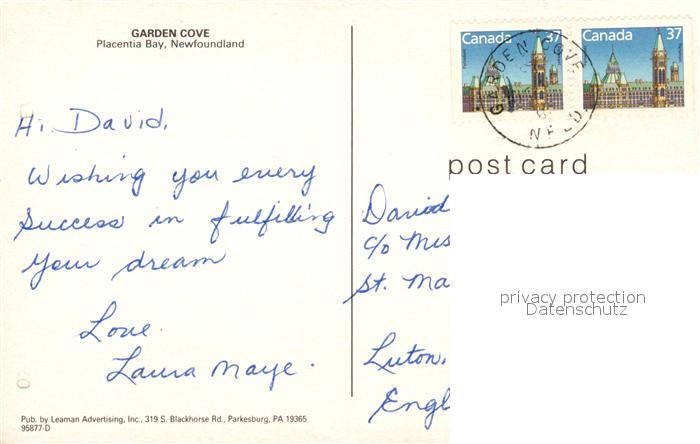 GARDEN COVE
Placentia Bay, Newfoundland
Canada 37
Canada 37
GARDEN COVE
NFLD.
post card
Hi David,
Wishing you every
success in fulfilling
your dream
Love
Laura Maye.
David
c/o Mis
St. Ma
Luton,
Engl
privacy protection
Datenschutz
Pub. by Leaman Advertising, Inc., 319 S. Blackhorse Rd., Parkesburg, PA 19365
95877-D